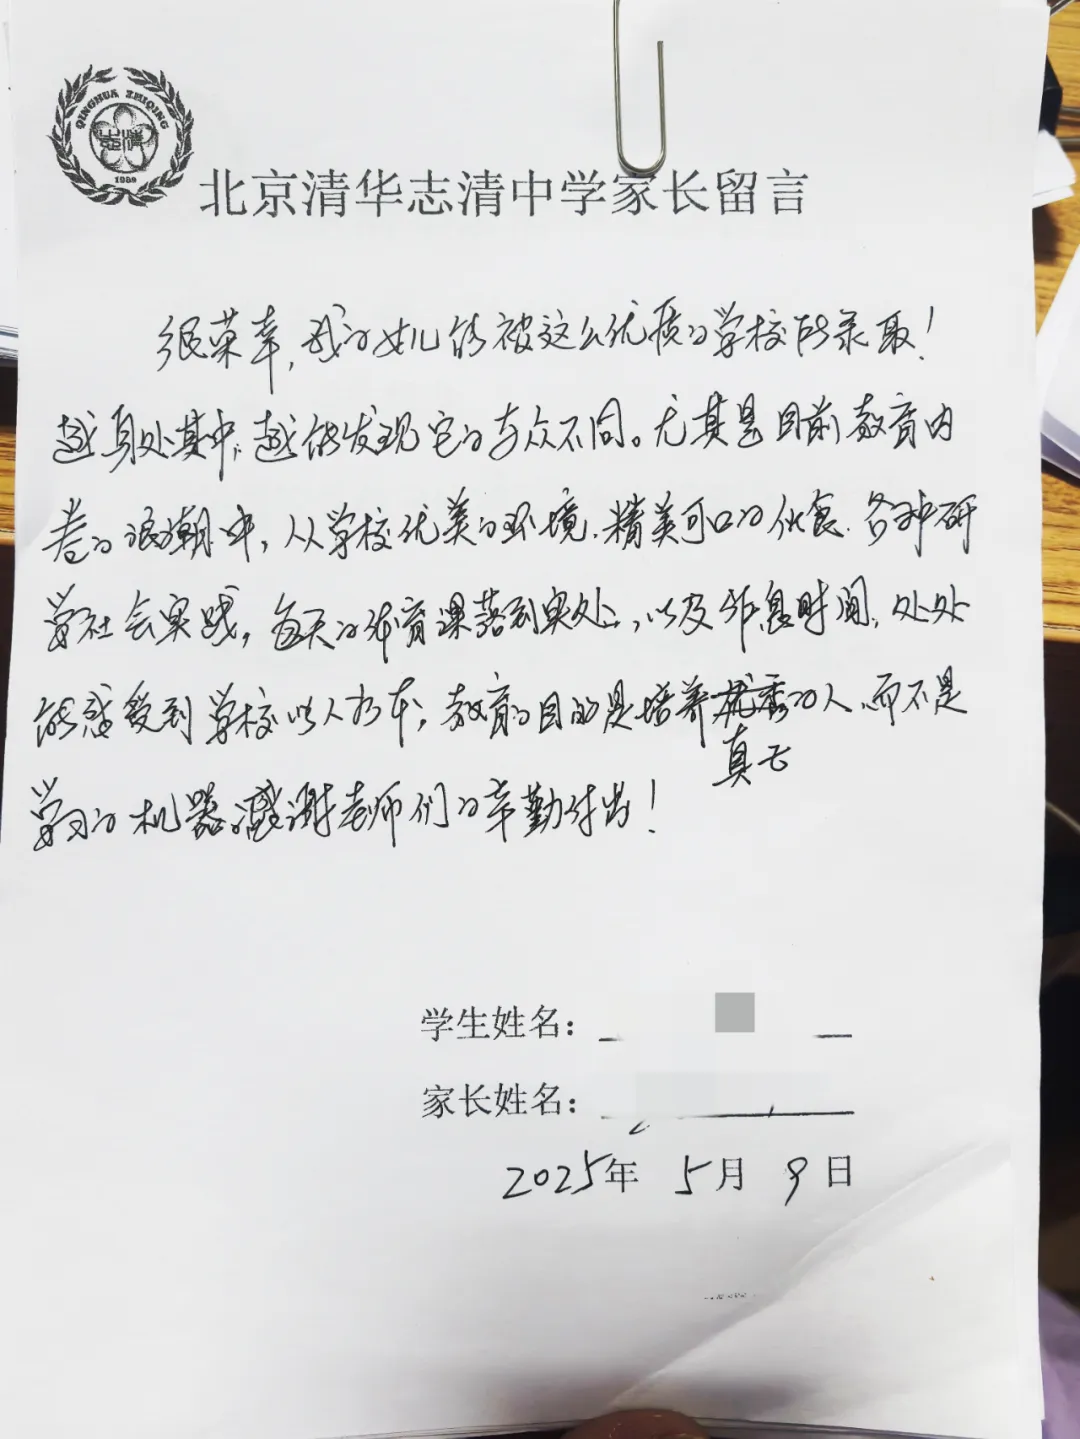 QINGHUA ZHIQING
志清
1989
北京清华志清中学家长留言
很荣幸,我的女儿能被这么优质的学校所录取!
越身处其中,越能发现它的与众不同。尤其是目前教育内
卷的浪潮中,从学校优美的环境、精美可口的伙食、各种研
学社会实践,每天的体育课落到实处,以及作息时间,处处
能感受到学校以人为本,教育的目的是培养优秀的人、而不是
真正
学习的机器。感谢老师们的辛勤付出!
学生姓名:
家长姓名:
2025年 5月 9日